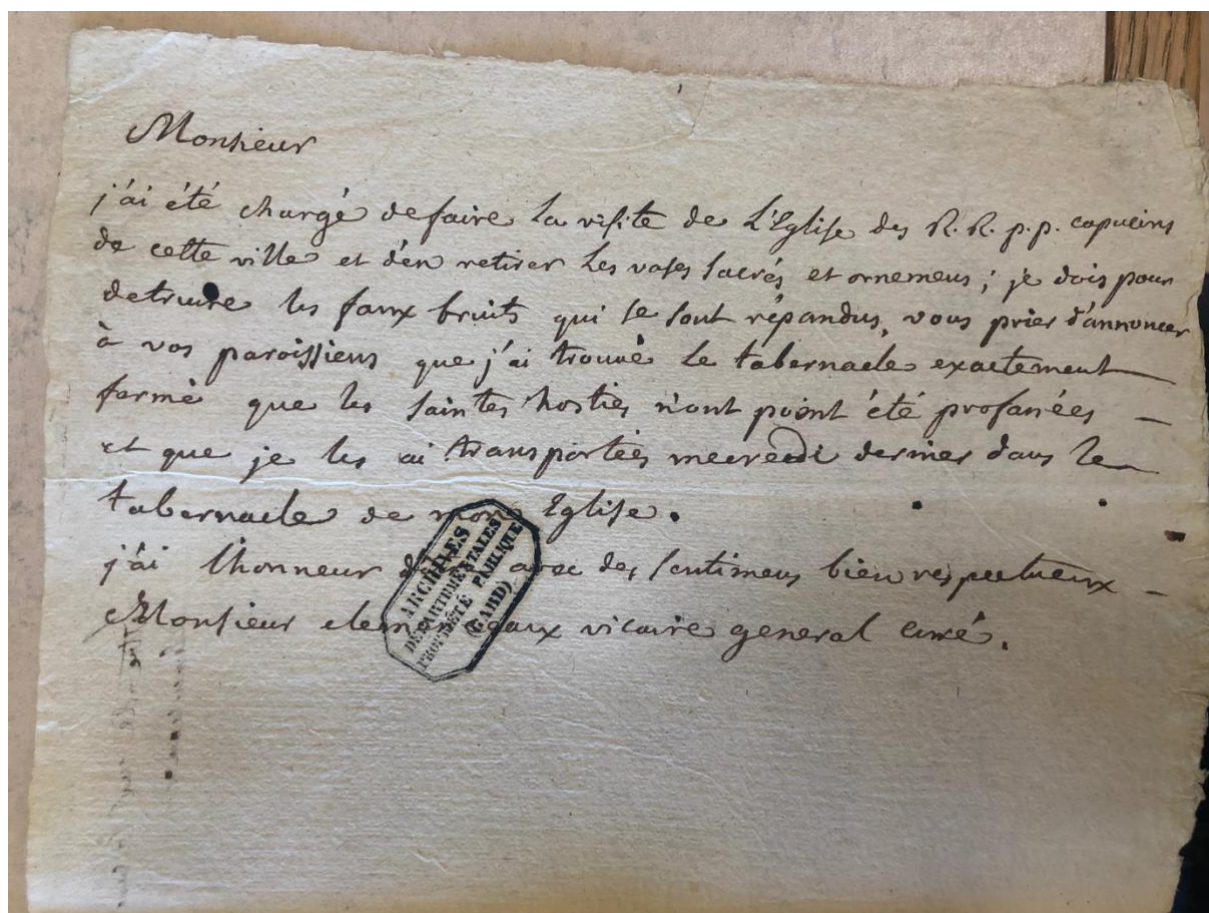 Monsieur
j'ai été chargé de faire la visite de L'Eglise des R. R. p.p. capucins
de cette ville et d'en retirer les vases sacrés et ornemens ; je dois pour
detruire les faux bruits qui se sont répandus, vous prier d'annoncer
à vos paroissiens que j'ai trouvé le tabernacle exactement
fermé que les saintes hosties n'ont point été profanées
et que je les ai transportées mecredi dernier dans le
tabernacle de mon Eglise.
j'ai lhonneur avec des sentimens bien respectueux
Monsieur vicaire general curé.
ARCHIVES
DÉPARTEMENTALES
PROPRIÉTÉ PUBLIQUE
(GARD)